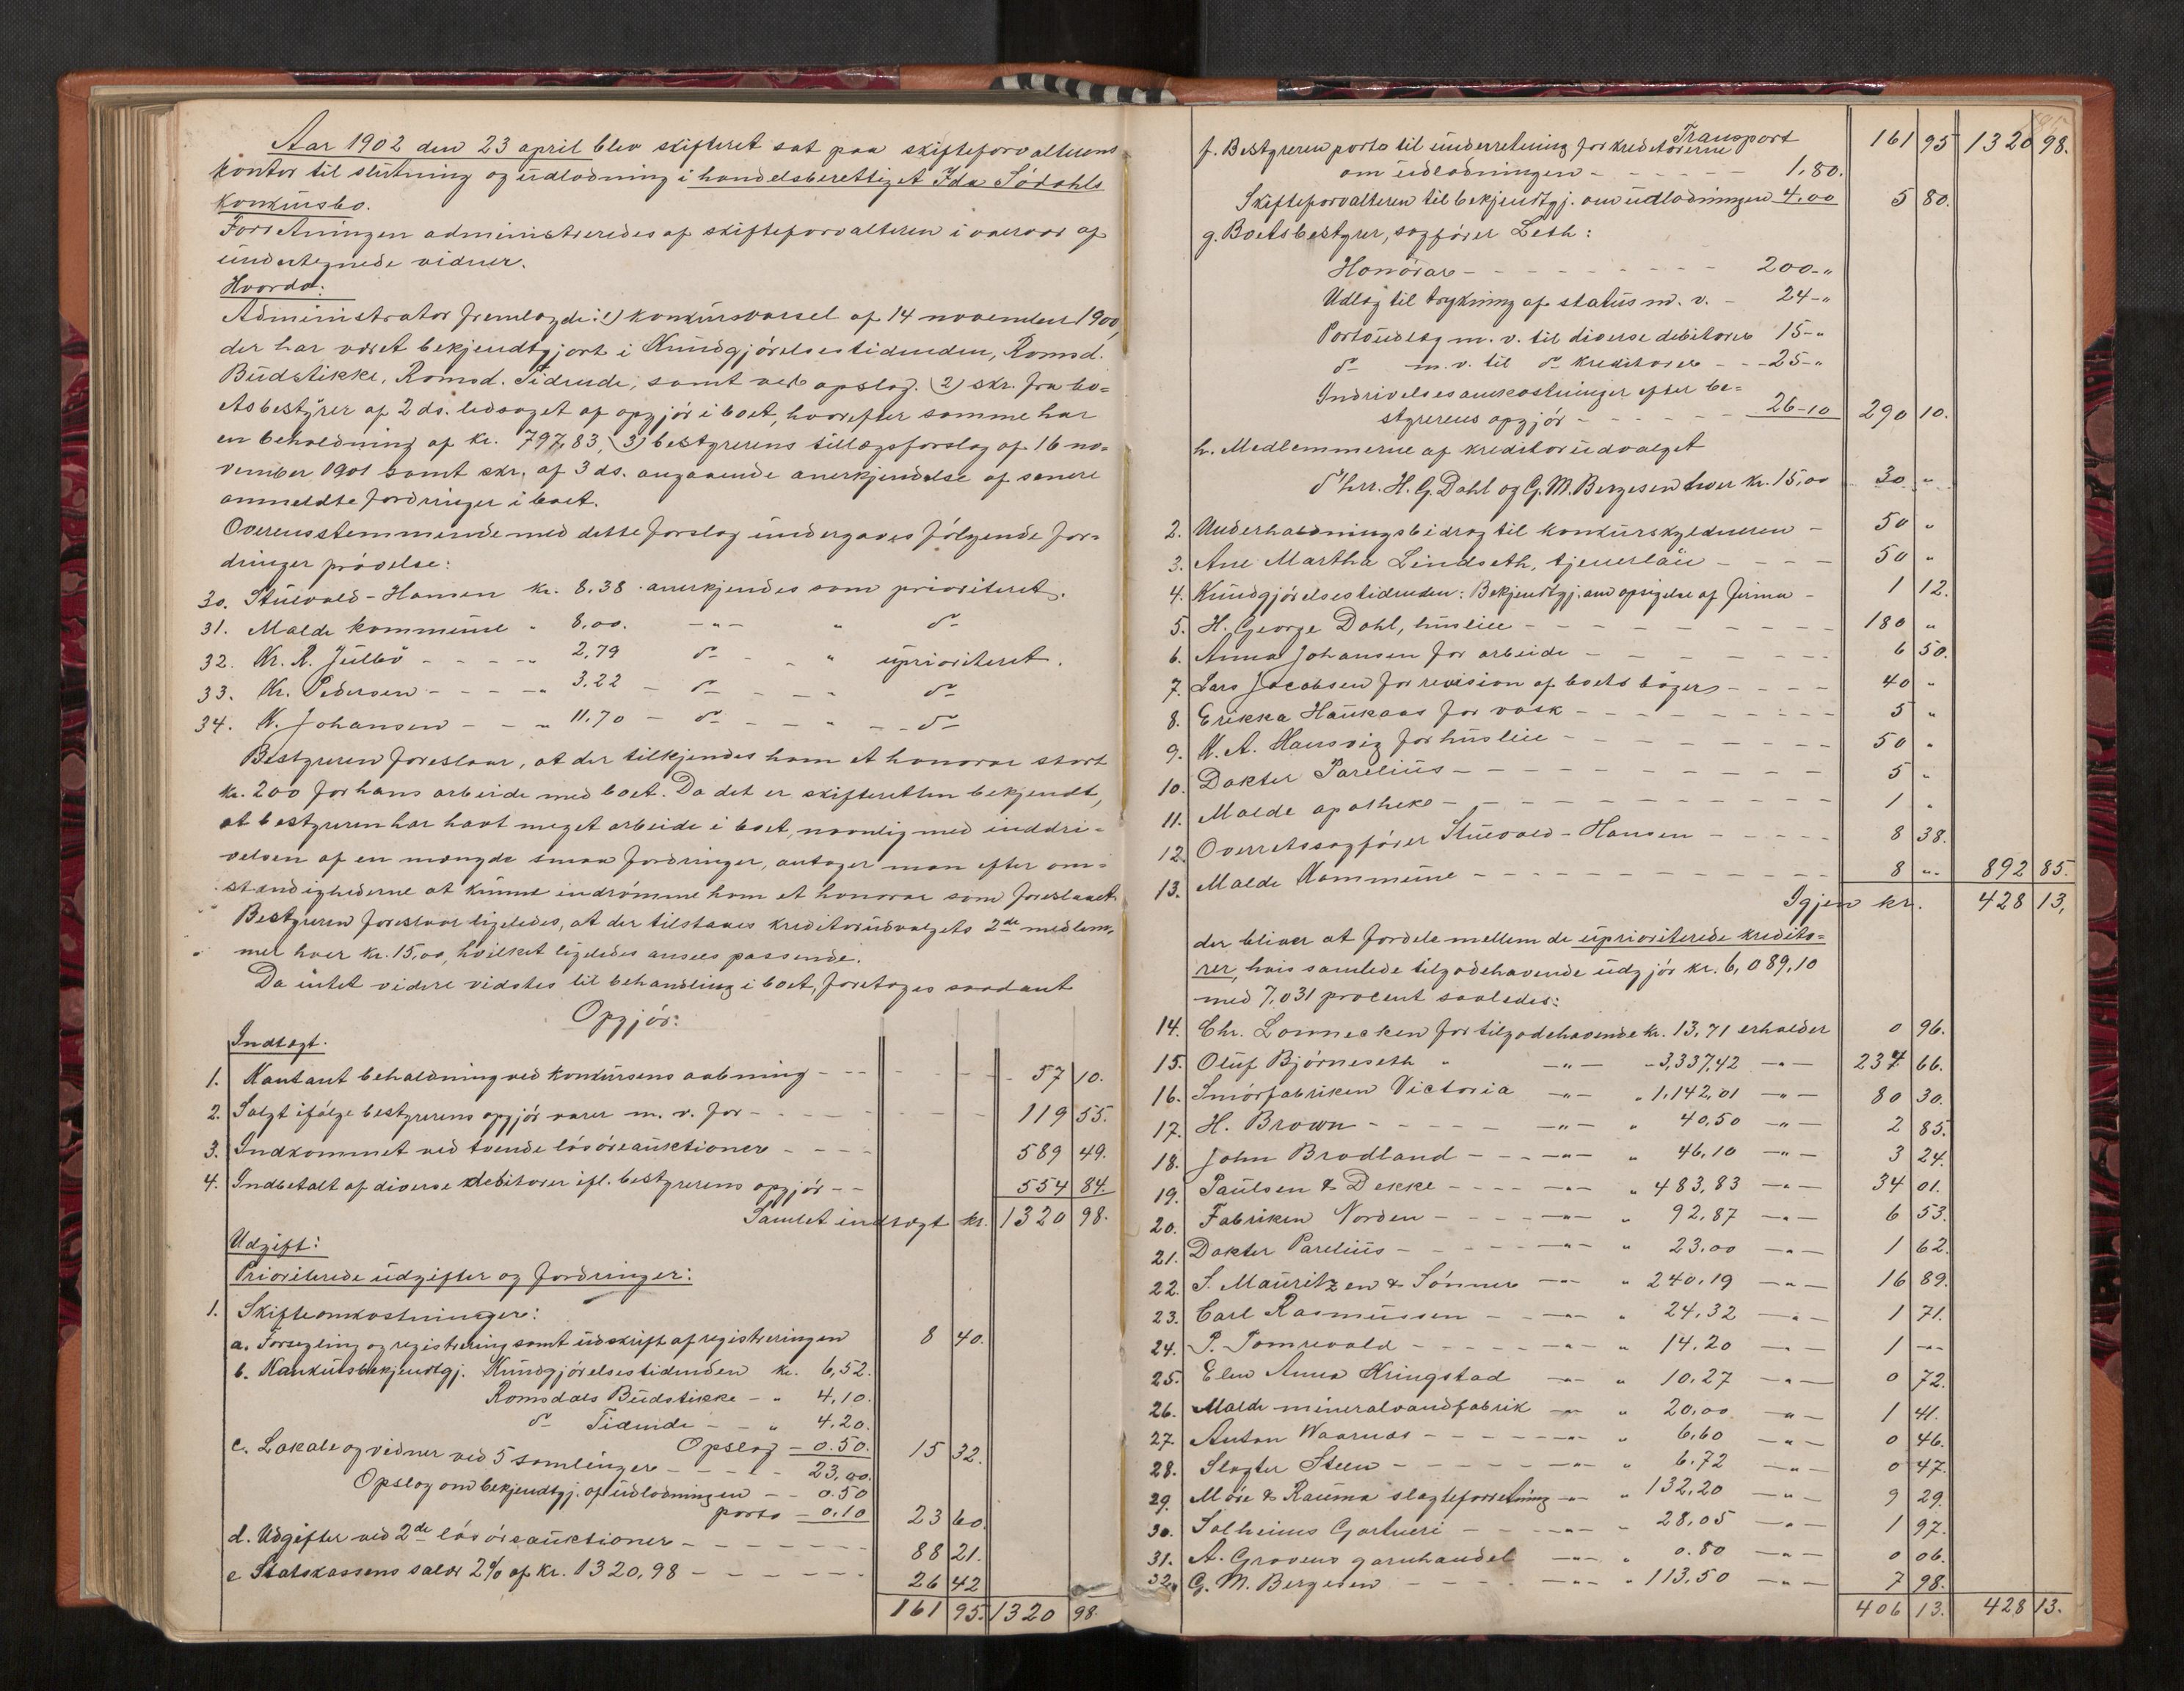 Aar 1902 den 23 april blev skifteret sat paa skifteforvalterens
kontor til slutning og udlodning i handelsberettiget Ida Sødahls
konkursbo.
Forretningen administreredes af skifteforvalteren i overvær af
undertegnede vidner.
Hvorda:
Administrator fremlagde: 1) konkursvarsel af 14 november 1900,
der har været bekjendtgjort i Kundgjørelsestidenden, Romsd.
Budstikke, Romsd. Tidende, samt ved opslag. 2) skr. fra bo=
etsbestyrer af 2 ds. ledsaget af opgjør i boet, hvorefter samme har
en beholdning af kr. 797,83, 3) bestyrerens tillægsforslag af 16 no=
vember 1901 samt skr. af 3 ds. angaaende anerkjendelse af senere
anmeldte fordringer i boet.
Overensstemmende med dette forslag undergaves følgende for=
dringer prøvelse:
30. Stuevold-Hansen kr. 8.38 anerkjendes som prioriteret.
31. Molde kommune " 8,00. -"- " do
32. Kr. R. Julbø - - - " 2,79 do - - " uprioriteret.
33. Kr. Pedersen - - - " 3.22 - do - - " do
34. K. Johansen - - " 11.70 - do - - " - - do
Bestyreren foreslaar, at der tilkjendes ham et honorar stort
kr. 200 for hans arbeide med boet. Da det er skifteretten bekjendt,
at bestyreren har havt meget arbeide i boet, navnlig med inddri=
velsen af en mængde smaa fordringer, antager man efter om=
stændighederne at kunne indrømme ham et honorar som foreslaaet.
Bestyreren foreslaar ligeledes, at der tilstaaes kreditorudvalgets 2de medlem=
mer hver kr. 15,00, hvilket ligeledes ansees passende.
Da intet videre vidstes til behandling i boet, foretoges saadant
Opgjør:
Indtægt.
1. Kontant beholdning ved konkursens aabning - - - - - 57 10.
2. Solgt ifølge bestyrerens opgjør varer m. v. for - - - - - 119 55.
3. Indkommet ved tvende løsøreauktioner - - - - 589 49.
4. Indbetalt af diverse debitorer ifl. bestyrerens opgjør - - 554 84.
Samlet indtægt kr. 1320 98.
Udgift:
Prioriterede udgifter og fordringer:
1. Skifteomkostninger:
a. Forsegling og registrering samt udskrift af registreringen 8 40.
b. Konkursbekjendtgj. Kundgjørelsestidenden kr. 6,52.
Romsdals Budstikke - " 4,10.
do Tidende - - " 4.20.
Opslag - 0.50. 15 32.
c. Lokale og vidner ved 5 samlinger - - - - 23,00.
Opslag om bekjendtgj. af udlodningen - - 0.50
porto - 0,10 23 60.
d. Udgifter ved 2de løsøreauktioner - - - - - - 88 21.
e Statskassens salær 2% af kr. 1320,98 - - - - - 26 42
161 95. 1320 98.
Transport 161 95 1320 98.
f. Bestyreren porto til underretning for kreditorerne
om udlodningen - - - - - - 1,80.
Skifteforvalteren til bekjendtgj. om udlodningen 4,00 5 80.
g. Boets bestyrer, sagfører Leth:
Honorar - - - - - - - - - 200-"
Udlæg til trykning af status m. v. - 24-"
Portoudlæg m. v. til diverse debitorer 15-"
do m. v. til do kreditorer - - 25-"
Indrivelsesomkostninger efter be=
styrerens opgjør - - - - - 26-10 290 10.
h. Medlemmerne af kreditorudvalget
d'hrr. H. G. Dahl og G. M. Bergesen hver kr. 15,00 30 "
2. Underholdningsbidrag til konkursskyldneren - 50 "
3. Ane Martha Lindseth, tjenerløn - - - - 50 "
4. Kundgjørelsestidenden: Bekjendtgj. om opsigelse af firma - 1 12.
5. H. George Dahl, husleie - - - - - - - - 180 "
6. Anna Johansen for arbeide - - - - - - 6 50.
7. Lars Jacobsen for revision af boets bøger - - - - 40 "
8. Erikka Haukaas for vask - - - - - - - - 5 "
9. K. A. Hansvig for husleie - - - - - - - - 50 "
10. Doktor Parelius - - - - - - - - - - 5 "
11. Molde apothek - - - - - - - - - - - 1 "
12. Overretssagfører Stuevold-Hansen - - - - - 8 38.
13. Molde Kommune - - - - - - - - - - 8 "- 892 85.
Igjen kr. 428 13,
der bliver at fordele mellem de uprioriterede kredito=
rer, hvis samlede tilgodehavende udgjør kr. 6,089,10
med 7,031 procent saaledes:
14. Chr. Lonnecken for tilgodehavende kr. 13,71 erholder 0 96.
15. Oluf Bjørneseth " -"- - 3,337,42 -"- 234 66.
16. Smørfabriken Victoria -"- " 1,142,01 -"- 80 30.
17. H. Brown - - - - - -"- " 40,50 -"- 2 85.
18. John Brodland - - - -"- " 46,10 -"- 3 24.
19. Paulsen & Dekke - - - - -"- " 483,83 -"- 34 01.
20. Fabriken Norden - - - -"- " 92,87 -"- 6 53.
21. Doktor Parelius - - - - -"- " 23,00 -"- 1 62.
22. S. Mauritzen & Sønner -"- " 240,19 -"- 16 89.
23. Carl Rasmussen - - -"- " 24,32 -"- 1 71.
24. P. Tomrevold - - - - - -"- " 14,20 -"- 1 -"-
25. Elen Anna Kringstad -"- " 10,27 -"- 0 72.
26. Molde mineralvandfabrik -"- " 20,00 -"- 1 41.
27. Anton Waarnes - - - - -"- " 6,60 -"- 0 46.
28. Slagter Steen - - - - - -"- " 6.72 -"- 0 47.
29. Møre & Rauma slagteforretning -"- " 132,20 -"- 9 29.
30. Solheims Gartneri - - -"- " 28,05 -"- 1 97.
31. A. Grovens garnhandel -"- " 0.80 -"- 0 06.
32. G. M. Bergesen - - - -"- " 113,50 -"- 7 98.
406 13. 428 13.